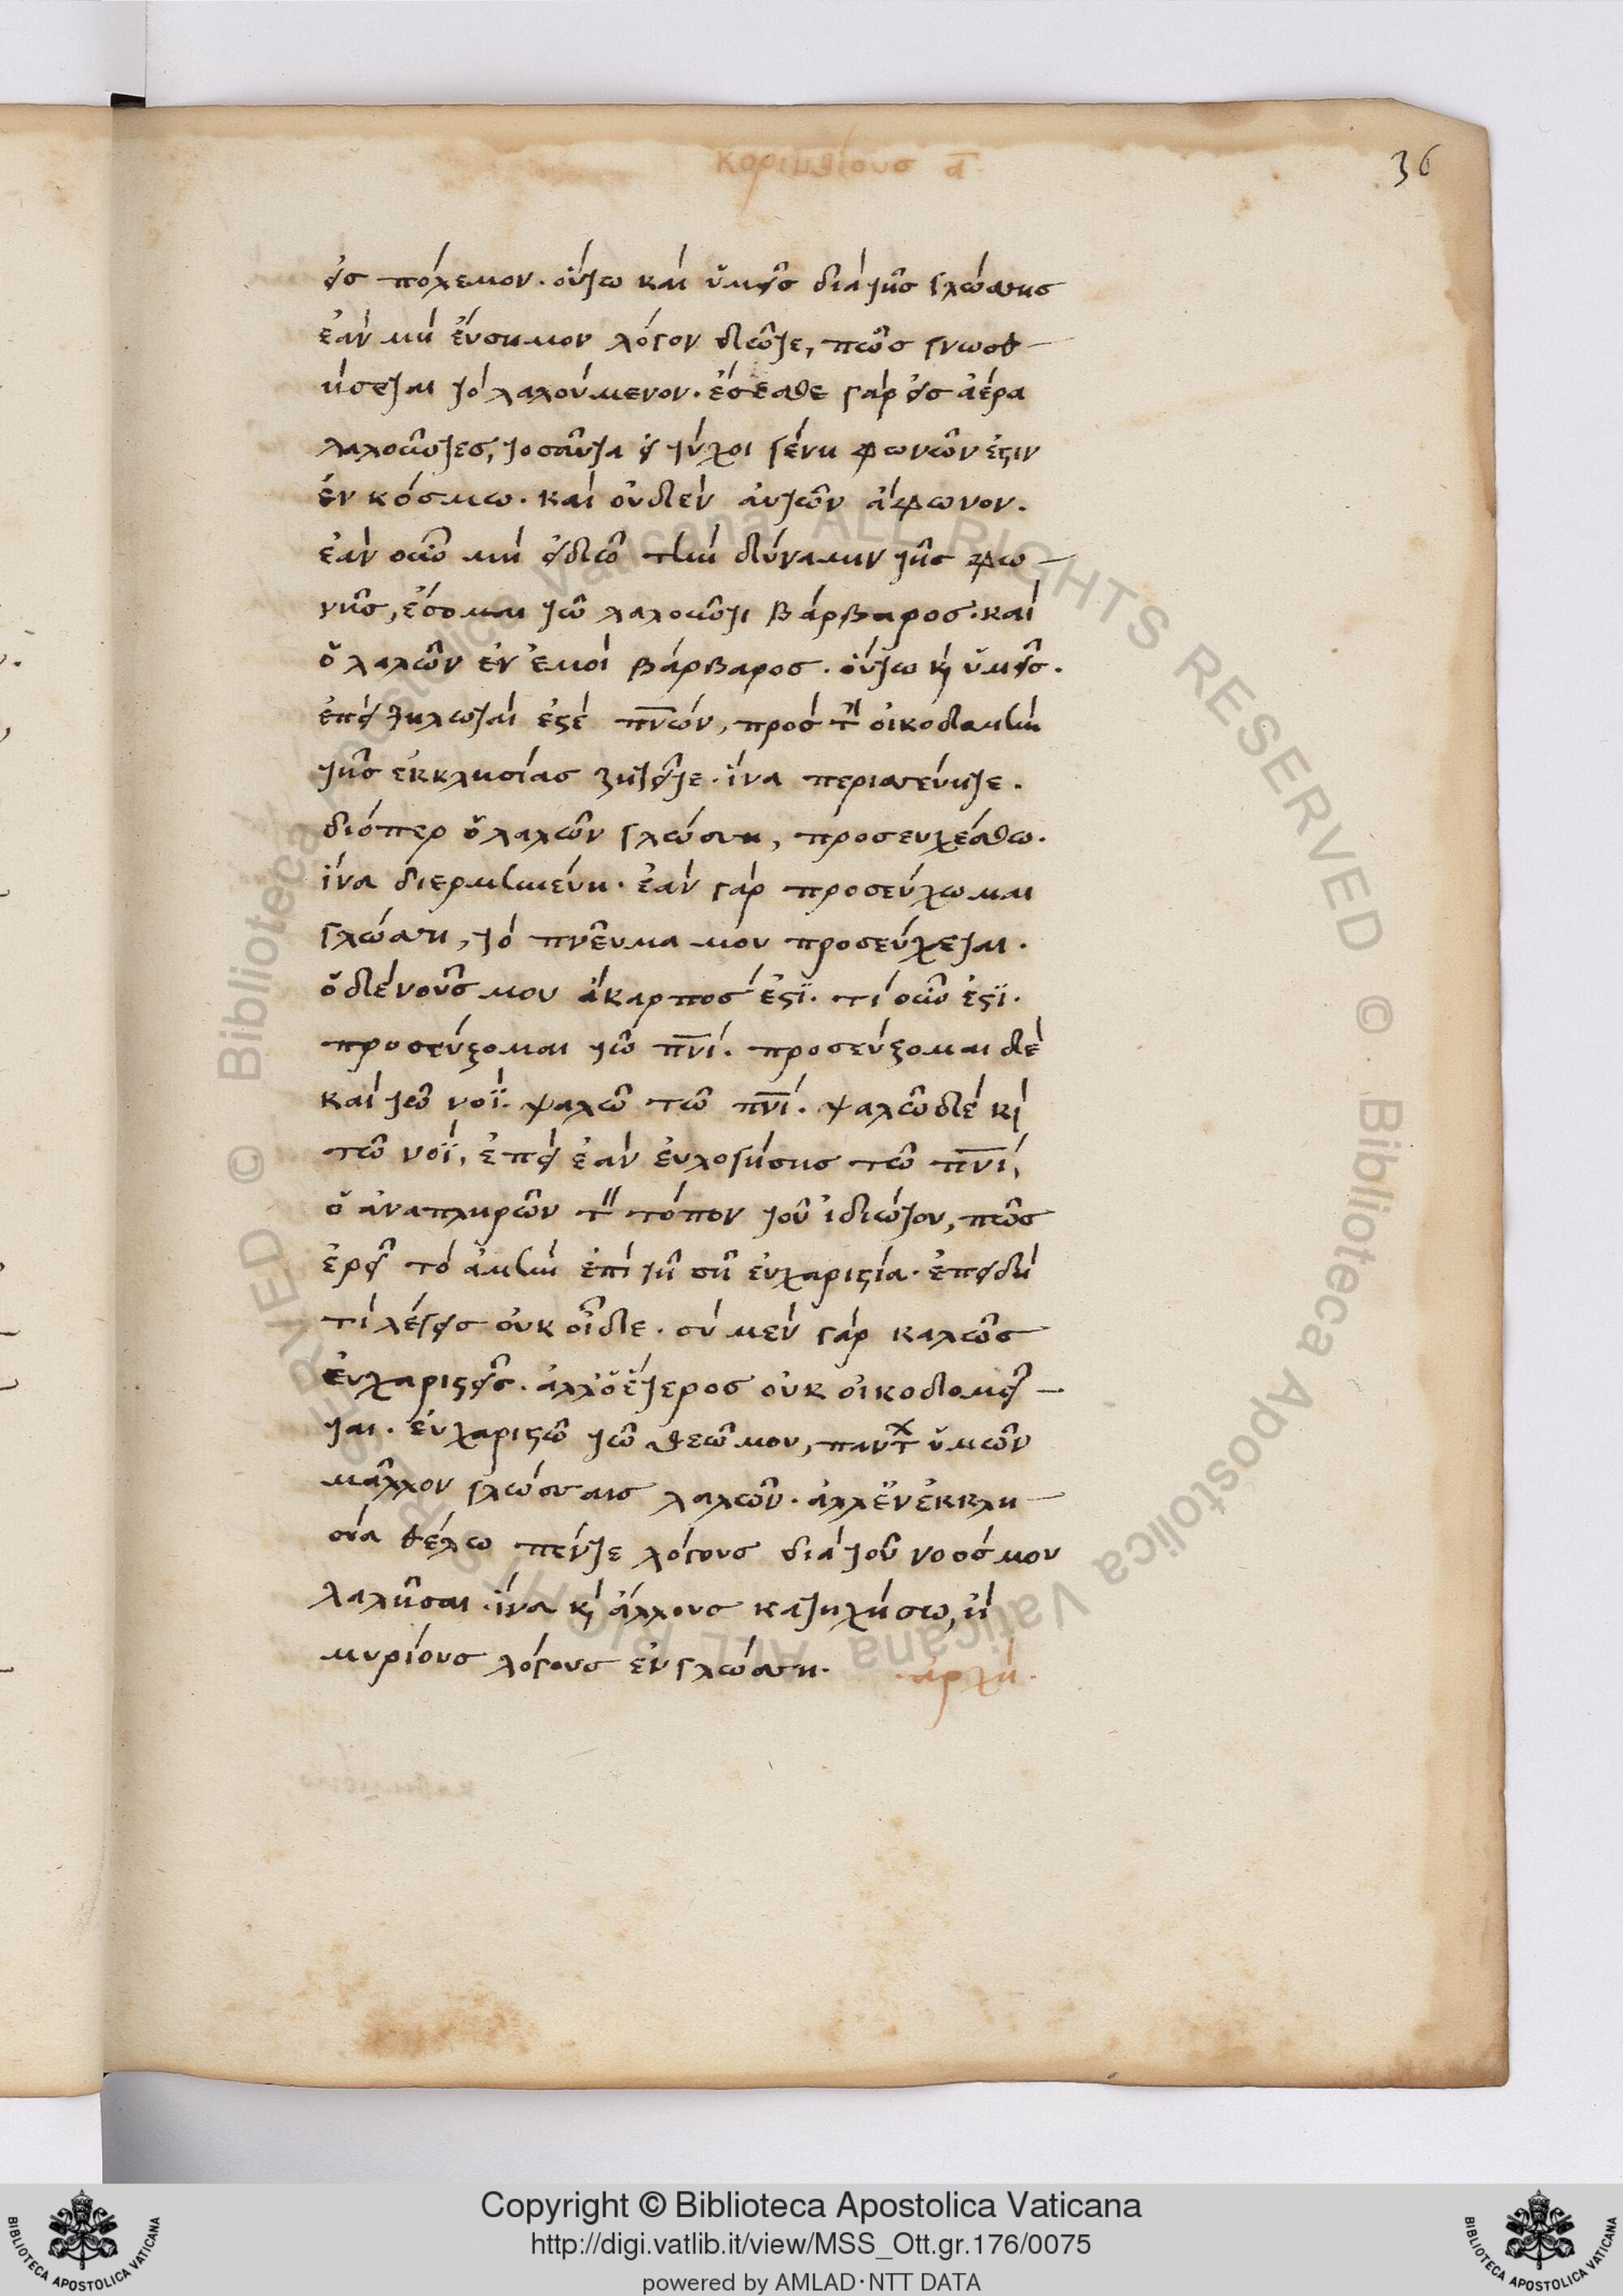 κορινθίους α
36
εἰς πόλεμον. οὕτω καὶ ὑμεῖς διὰ τῆς γλώσσης
ἐὰν μὴ εὔσημον λόγον δῶτε, πῶς γνωσθ-
ήσεται τὸ λαλούμενον. ἔσεσθε γὰρ εἰς ἀέρα
λαλοῦντες, τοσαῦτα εἰ τύχοι γένη φωνῶν ἐστιν
ἐν κόσμω. καὶ οὐδὲν αὐτῶν ἄφωνον.
ἐὰν οὖν μὴ εἰδῶ τὴν δύναμιν τῆς φω-
νῆς, ἔσομαι τῶ λαλοῦντι βάρβαρος. καὶ
ὁ λαλῶν ἐν ἐμοὶ βάρβαρος. οὕτω κ(αὶ) ὑμεῖς.
ἐπεὶ ζηλωταί ἐστέ πν̅ων, πρὸς τὴν οἰκοδομὴν
τῆς ἐκκλησίας ζητεῖτε. ἵνα περισσεύητε.
διόπερ ὁ λαλῶν γλώσση, προσευχέσθω.
ἵνα διερμηνεύη. ἐὰν γὰρ προσεύχωμαι
γλώσση, τὸ πνεῦμα μου προσεύχεται.
ὁ δὲ νοῦς μου ἄκαρπος ἐστϊ. τί οὖν ἐστϊ.
προσεύξομαι τῶ πν̅ι. προσεύξομαι δὲ
καὶ τῶ νοΐ. ψαλῶ τῶ πν̅ι. ψαλῶ δὲ κ(αὶ)
τῶ νοΐ, ἐπεὶ ἐὰν εὐλογήσης τῶ πν̅ι,
ὁ ἀναπληρῶν τὸν τόπον τοῦ ἰδιώτου, πῶς
ἐρεῖ τὸ ἀμὴν ἐπὶ τῆ σῆ εὐχαριστία. ἐπειδὴ
τί λέγεις οὐκ οἶδε. σὺ μὲν γὰρ καλῶς
εὐχαριστεῖς. ἀλλ' ὁ ἕτερος οὐκ οἰκοδομεῖ-
ται. εὐχαριστῶ τῶ θεῶ μου, πάντων ὑμῶν
μᾶλλον γλώσσαις λαλῶν. ἀλλ' ἐν ἐκκλη-
σία θέλω πέντε λόγους διὰ τοῦ νοός μου
λαλῆσαι. ἵνα κ(αὶ) ἄλλους κατηχήσω, ἢ
μυρίους λόγους ἐν γλώσση. .ἀρχή.
Copyright © Biblioteca Apostolica Vaticana
http://digi.vatlib.it/view/MSS_Ott.gr.176/0075
powered by AMLAD·NTT DATA
BIBLIOTECA APOSTOLICA VATICANA
BIBLIOTECA APOSTOLICA VATICANA